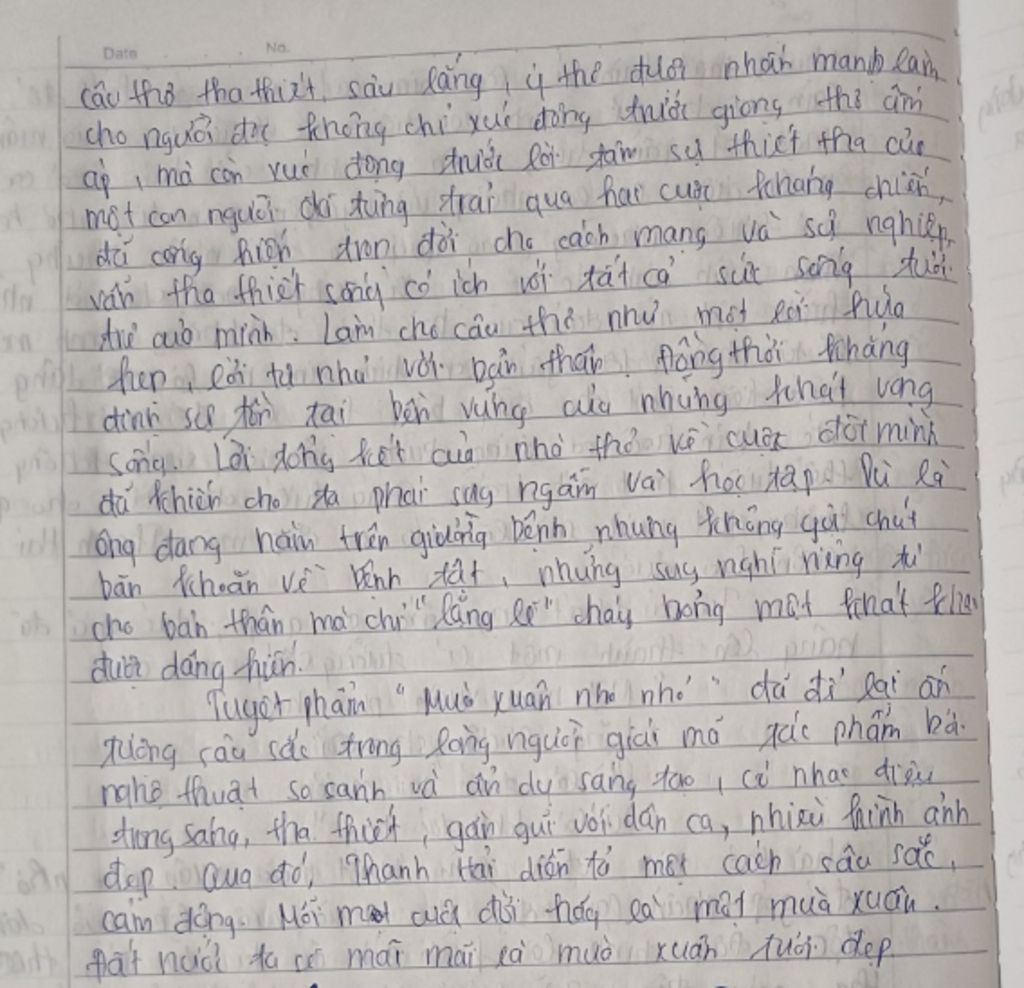 Date No.
câu thơ tha thiết, sâu lắng, ý thơ được nhấn mạnh làm
cho người đọc không chỉ xúc động trước giọng thơ ấm
áp, mà còn xúc động trước lời tâm sự thiết tha của
một con người đã từng trải qua hai cuộc kháng chiến,
đã cống hiến trọn đời cho cách mạng và sự nghiệp,
vẫn tha thiết sống có ích với tất cả sức sống tươi
trẻ của mình. Làm cho câu thơ như một lời hứa
hẹn, lời tự nhủ với bản thân. Đồng thời khẳng
định sự tồn tại bền vững của những khát vọng
sống. Lời tổng kết của nhà thơ về cuộc đời mình
đã khiến cho ta phải suy ngẫm và học tập. Dù là
ông đang nằm trên giường bệnh nhưng không gợi chút
băn khoăn về bệnh tật, những suy nghĩ riêng tư
cho bản thân mà chỉ "lặng lẽ" cháy bỏng một khát khao
được dâng hiến.
Tuyệt phẩm "Mùa xuân nho nhỏ" đã để lại ấn
tượng sâu sắc trong lòng người giải mã tác phẩm bởi
nghệ thuật so sánh và ẩn dụ sáng tạo, có nhạc điệu
trong sáng, tha thiết, gần gũi với dân ca, nhiều hình ảnh
đẹp. Qua đó, Thanh Hải diễn tả một cách sâu sắc,
cảm động. Mỗi một cuộc đời hãy là một mùa xuân.
Đất nước ta có mãi mãi là mùa xuân tươi đẹp